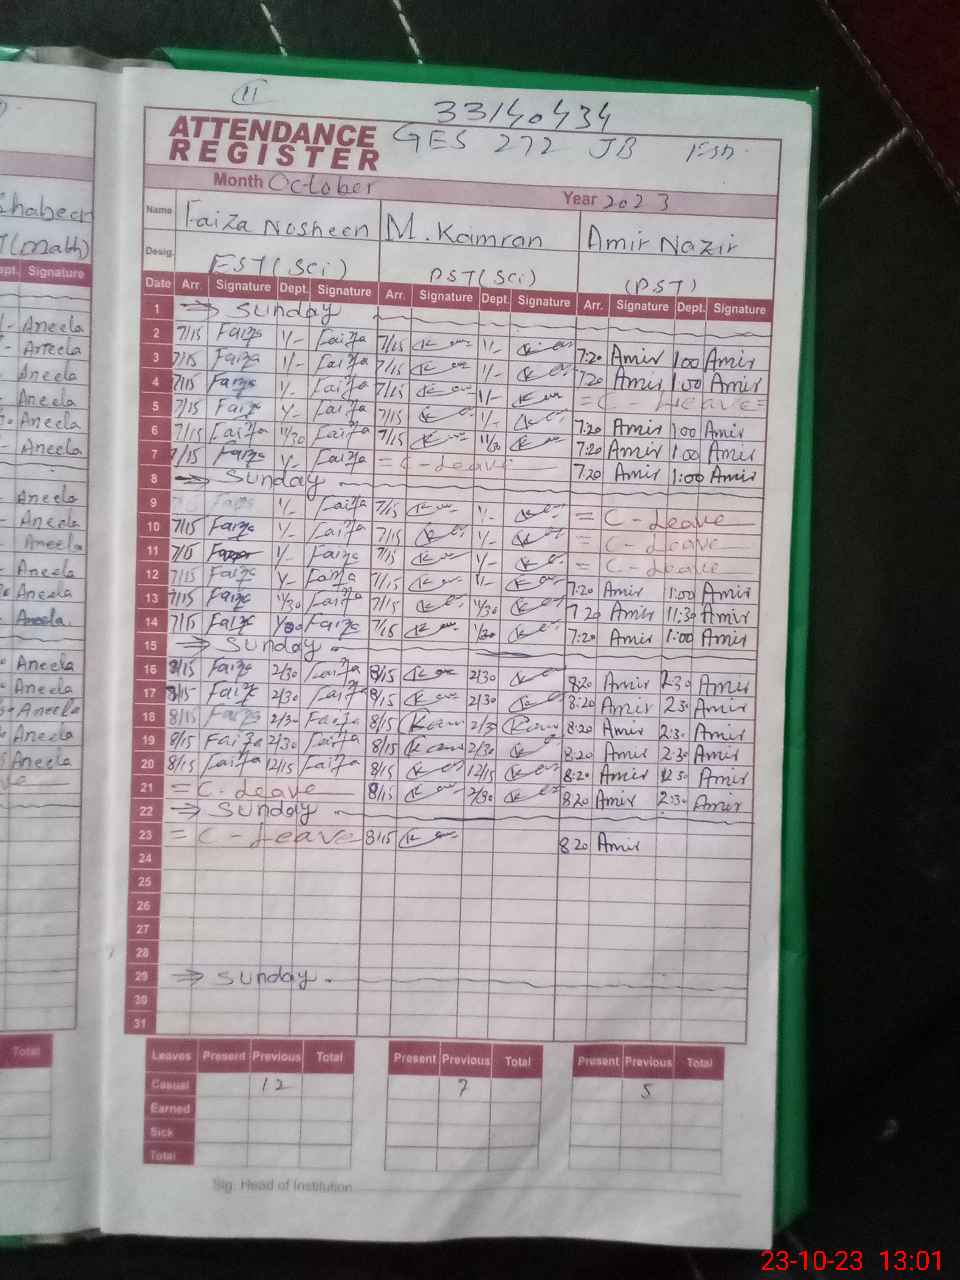 11
33140434
ATTENDANCE REGISTER GES 272 JB Fsd.
Month October Year 2023
Name Faiza Nosheen M. Kamran Amir Nazir
Desig. EST (Sci) PST (Sci) (PST)
Date Arr. Signature Dept. Signature Arr. Signature Dept. Signature Arr. Signature Dept. Signature
1 → Sunday
2 7/15 Faiza 1/- Faiza 7/15 1/- 7:20 Amir 1:00 Amir
3 7/15 Faiza 1/- Faiza 7/15 1/- 7:20 Amir 1:00 Amir
4 7/15 Faiza 1/- Faiza 7/15 1/- = C - Leave =
5 7/15 Faiza 1/- Faiza 7/15 1/- 7:20 Amir 1:00 Amir
6 7/15 Faiza 11/30 Faiza 7/15 11/30 7:20 Amir 1:00 Amir
7 7/15 Faiza 1/- Faiza = C - Leave 7:20 Amir 1:00 Amir
8 → Sunday
9 Faiza 1/- Faiza 7/15 1/- = C - Leave
10 7/15 Faiza 1/- Faiza 7/15 1/- = C - Leave
11 7/15 1/- Faiza 7/15 1/- = C - Leave
12 7/15 Faiza 1/- Faiza 7/15 1/- 7:20 Amir 1:00 Amir
13 7/15 Faiza 11/30 Faiza 7/15 11/30 7:20 Amir 11:30 Amir
14 7/15 Faiza Faiza 7/15 1/30 7:20 Amir 1:00 Amir
15 → Sunday
16 8/15 Faiza 2/30 Faiza 8/15 2/30 8:20 Amir 2:30 Amir
17 8/15 Faiza 2/30 Faiza 8/15 2/30 8:20 Amir 2:30 Amir
18 8/15 Faiza 2/30 Faiza 8/15 2/30 8:20 Amir 2:30 Amir
19 8/15 Faiza 2/30 Faiza 8/15 2/30 8:20 Amir 2:30 Amir
20 8/15 Faiza 12/15 Faiza 8/15 12/15 8:20 Amir Amir
21 = C - Leave 8/15 2/30 8:20 Amir 2:30 Amir
22 → Sunday
23 = C - Leave 8/15 8:20 Amir
24
25
26
27
28
29 → Sunday
30
31
Leaves Present Previous Total Present Previous Total Present Previous Total
Casual 12 7 5
Earned
Sick
Total
Sig. Head of Institution
(Math)
Signature
Aneela
Aneela
Aneela
Aneela
Aneela
Aneela
Aneela
Aneela
Aneela
Aneela
Aneela
Aneela
Aneela
Aneela
Aneela
Aneela
Aneela
Total
23-10-23 13:01